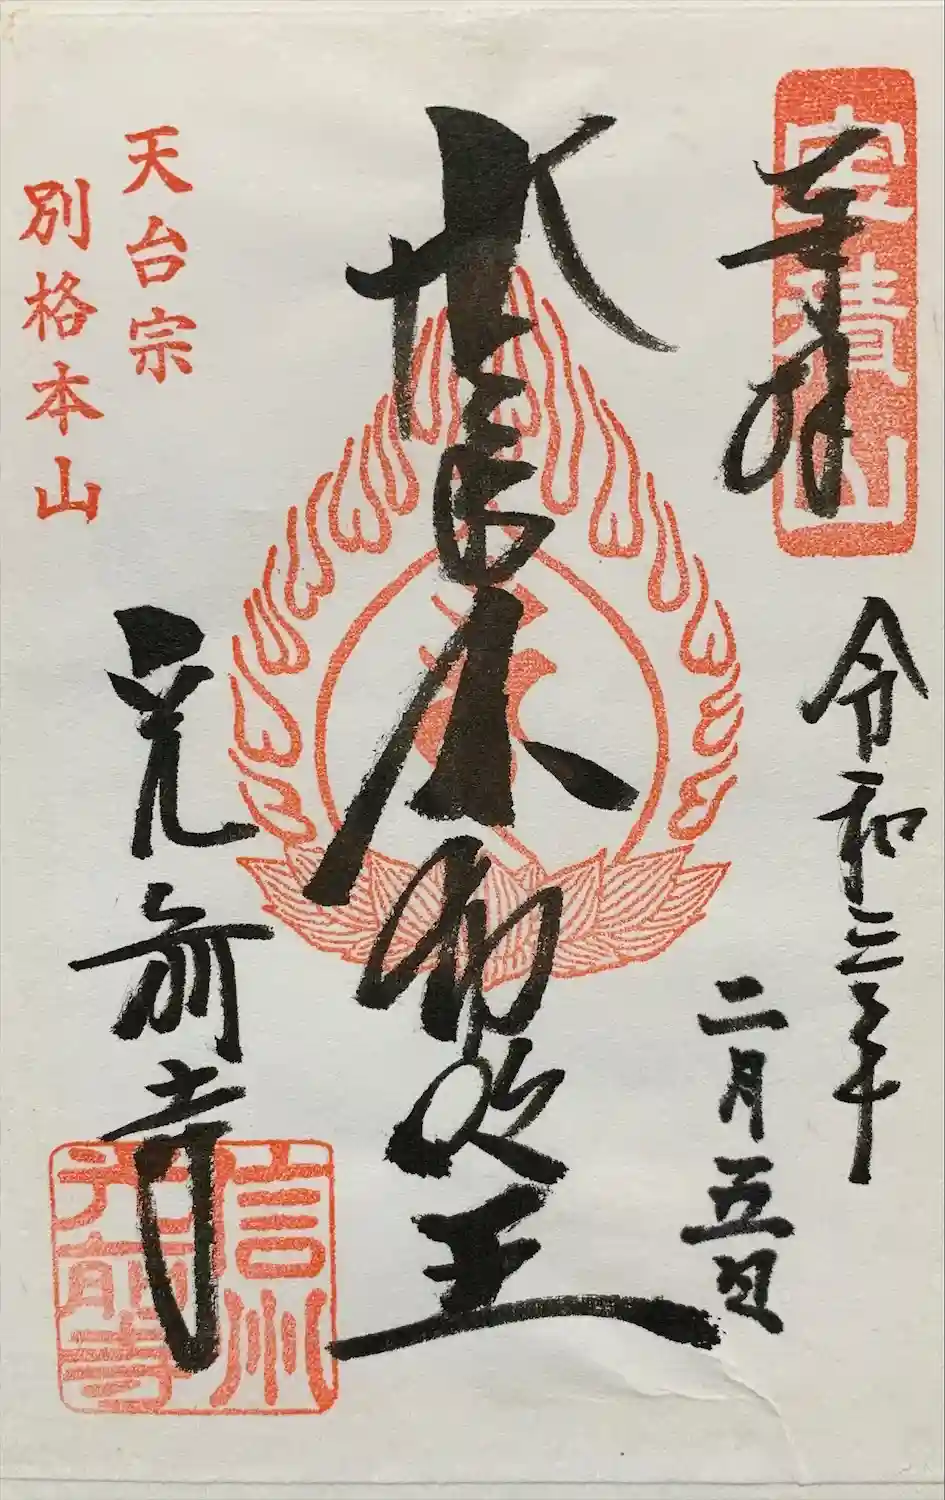 奉拝
宝積山
令和三年
二月五日
不動明王
天台宗
別格本山
光前寺
信州
光前寺